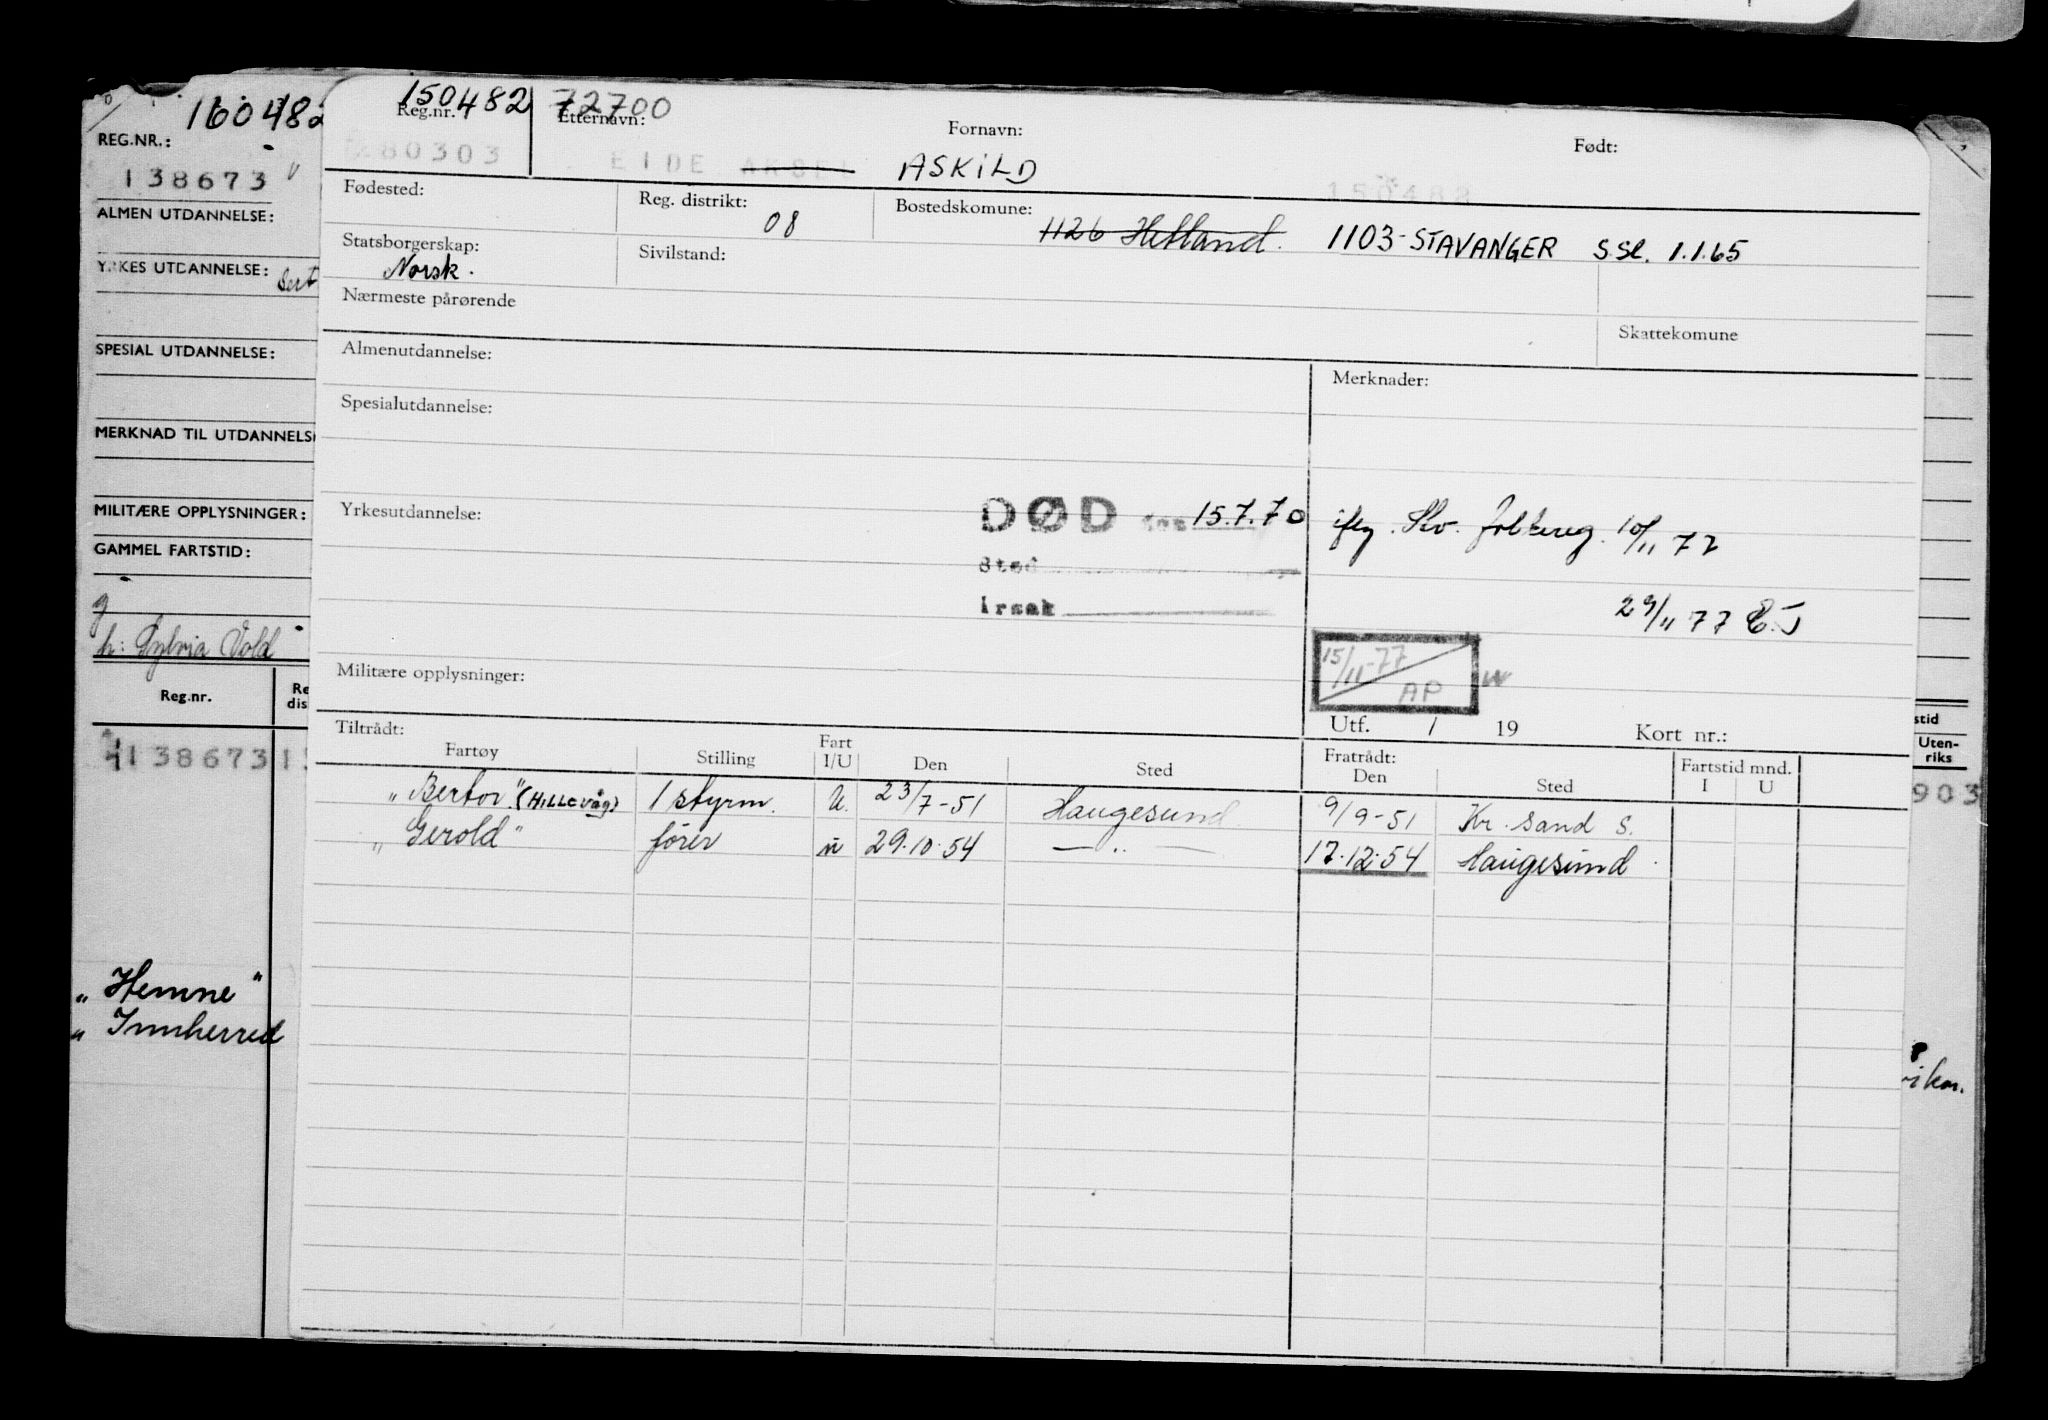 160482
REG.NR.:
138673
ALMEN UTDANNELSE:
YRKES UTDANNELSE:
SPESIAL UTDANNELSE:
MERKNAD TIL UTDANNELS
MILITÆRE OPPLYSNINGER:
GAMMEL FARTSTID:
g
h: Sylvia Vold
Reg.nr.
138673
"Hemne"
"Innherred
150482 72700
Reg.nr. Etternavn: Fornavn: Født:
80303 EIDE AKSEL ASKILD 150482
Fødested: Reg. distrikt: 08 Bostedskomune: 1126 Hetland. 1103-STAVANGER S.Sl. 1.1.65
Statsborgerskap: Norsk. Sivilstand:
Nærmeste pårørende
Skattekomune
Almenutdannelse:
Merknader:
Spesialutdannelse:
Yrkesutdannelse: DØD 15.7.70 iflg. Stv. folkereg. 10/11 77
Sted
Årsak
29/11 77 E.J
15/11-77 AP
Militære opplysninger:
Utf. / 19 Kort nr.:
Tiltrådt: Fratrådt:
Fartøy Stilling Fart I/U Den Sted Den Sted Fartstid mnd. I U
"Bertor" (HILLEVÅG) 1 styrm. U. 23/7-51 Haugesund 9/9-51 Kr. sand S.
"Gerold" fører u 29.10.54 — " — 17.12.54 Haugesund.
stid
Uten-
riks
903